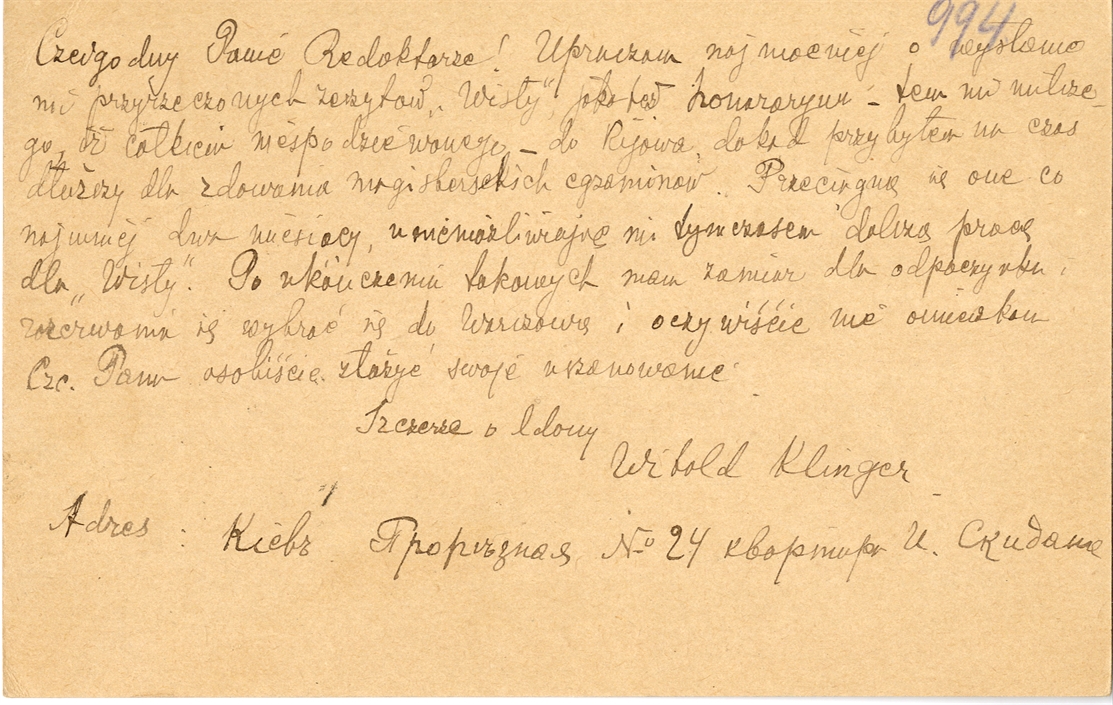 994
Czcigodny Panie Redaktorze! Upraszam najmocniej o wysłanie
mi przyrzeczonych zeszytów „Wisły”, jako też honoraryum – tem mi milsze-
go, iż całkiem niespodziewanego – do Kijowa dokąd przybyłem na czas
dłuższy dla zdawania magisterskich egzaminów. Przeciągną się one co
najmniej dwa miesiące, uniemożliwiając mi tymczasem dalszą pracę
dla „Wisły”. Po ukończeniu takowych mam zamiar dla odpoczynku i
rozerwania się wybrać się do Warszawy i oczywiście nie omieszkam
Czc. Panu osobiście złożyć swoje uszanowanie
Szczerze oddany
Witold Klinger
Adres : Кіевъ Прорѣзная № 24 квартира И.